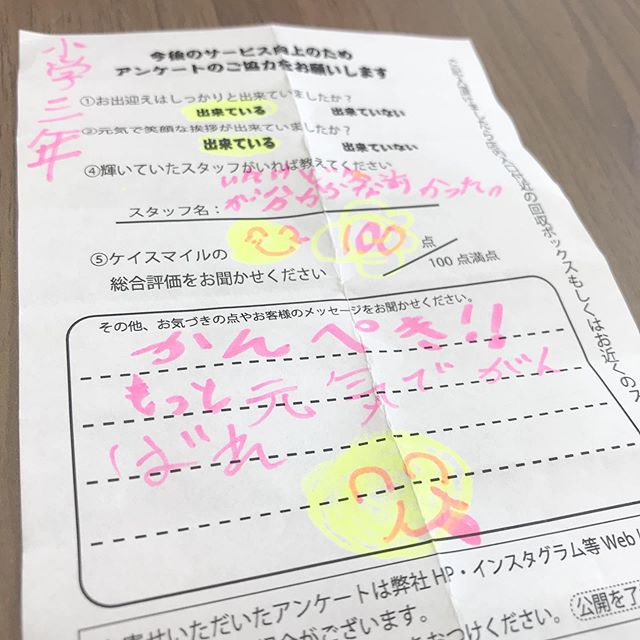 小学三年
今後のサービス向上のため
アンケートのご協力をお願いします
①お出迎えはしっかりと出来ていましたか？
出来ている 出来ていない
②元気で笑顔な挨拶が出来ていましたか？
出来ている 出来ていない
④輝いていたスタッフがいれば教えてください
スタッフ名：
⑤ケイスマイルの
総合評価をお聞かせください
100 点
100点満点
その他、お気づきの点やお客様のメッセージをお聞かせください。
かんぺき!!
もっと元気でがん
ばれ
いただいたアンケートは弊社HP・インスタグラム等Web
がございます。
つけください。 公開を了
の回収ボックスもしくはお近くのス